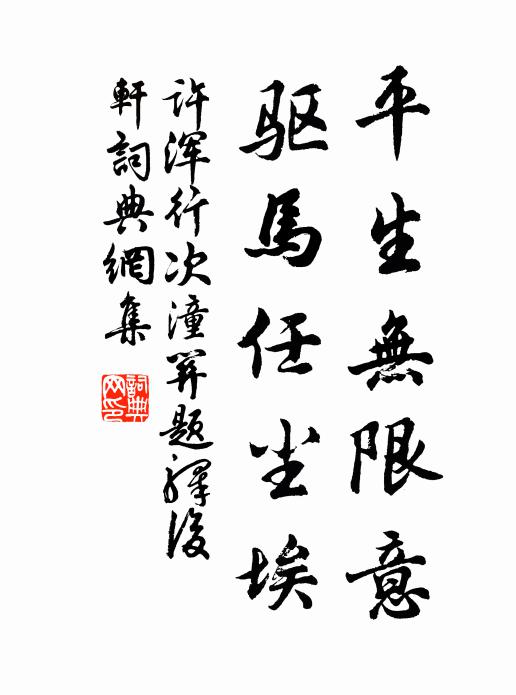 平生無限意
驱馬任尘埃
许浑行次潼關题驿後
軒詞典網集
詞典
网印